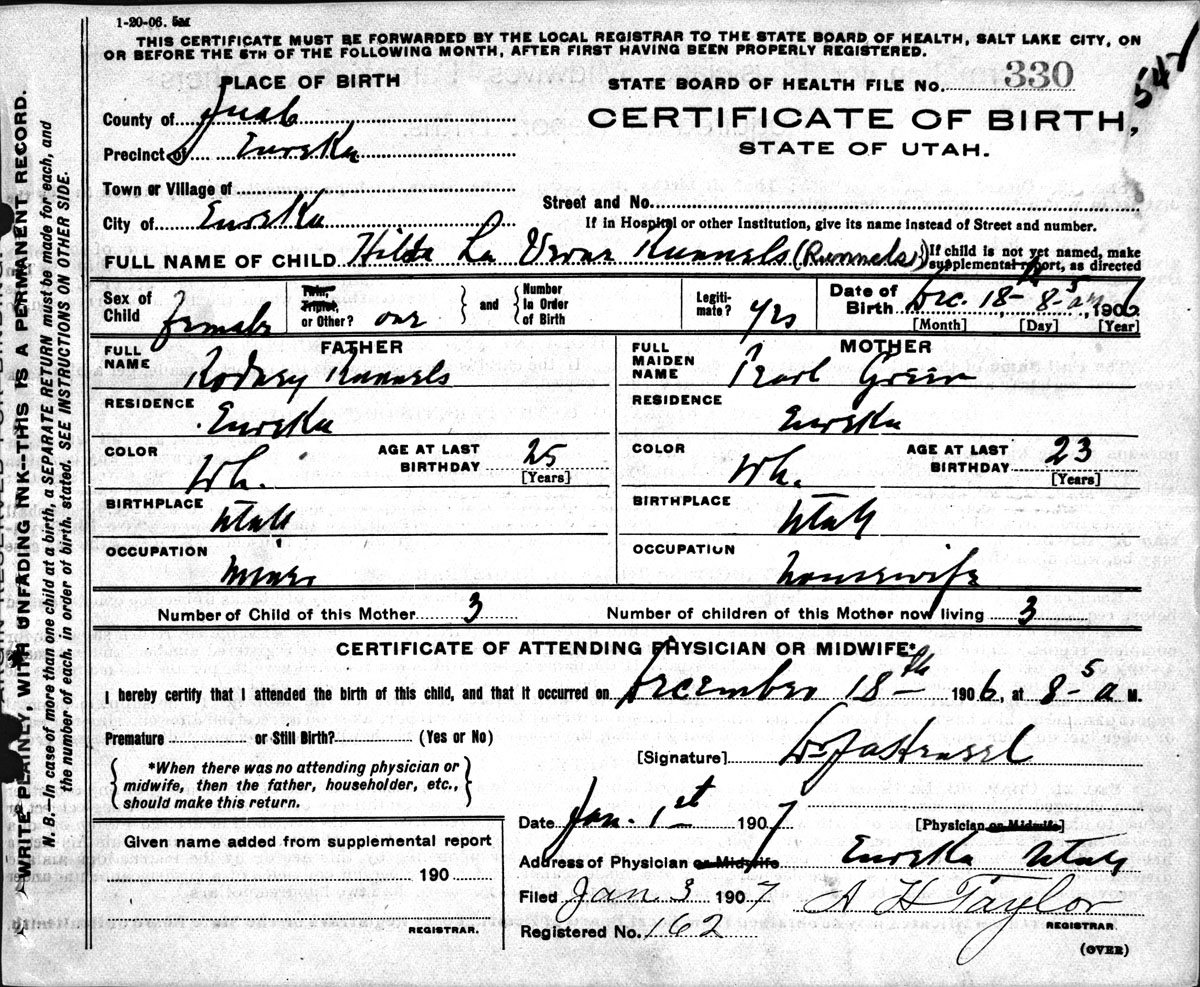 1-20-06. 5M
THIS CERTIFICATE MUST BE FORWARDED BY THE LOCAL REGISTRAR TO THE STATE BOARD OF HEALTH, SALT LAKE CITY, ON
OR BEFORE THE 5TH OF THE FOLLOWING MONTH, AFTER FIRST HAVING BEEN PROPERLY REGISTERED.
547
PLACE OF BIRTH
STATE BOARD OF HEALTH FILE No. 330
County of Juab
CERTIFICATE OF BIRTH,
Precinct of Eureka
STATE OF UTAH.
Town or Village of
Street and No.
City of Eureka
If in Hospital or other Institution, give its name instead of Street and number.
FULL NAME OF CHILD Hilda La Verne Runnels (Runnels)
{If child is not yet named, make
supplemental report, as directed
Sex of Child female
Twin, Triplet, or Other? one
and { Number in Order of Birth
Legitimate? yes
Date of Birth Dec. 18- 8-5 am, 1906
[Month] [Day] [Year]
FATHER
FULL NAME Rodney Runnels
RESIDENCE Eureka
COLOR Wh.
AGE AT LAST BIRTHDAY 25
[Years]
BIRTHPLACE Utah
OCCUPATION Miner
MOTHER
FULL MAIDEN NAME Pearl Green
RESIDENCE Eureka
COLOR Wh.
AGE AT LAST BIRTHDAY 23
[Years]
BIRTHPLACE Utah
OCCUPATION housewife
Number of Child of this Mother 3 Number of children of this Mother now living 3
CERTIFICATE OF ATTENDING PHYSICIAN OR MIDWIFE*
I hereby certify that I attended the birth of this child, and that it occurred on December 18th 1906, at 8-5 a M.
Premature or Still Birth? (Yes or No)
[Signature] Dr
{ *When there was no attending physician or
midwife, then the father, householder, etc.,
should make this return. }
Date Jan. 1st 1907
[Physician or Midwife]
Address of Physician or Midwife Eureka Utah
Filed Jan 3 1907 A H Taylor
REGISTRAR.
Registered No. 162
(OVER)
Given name added from supplemental report
190
REGISTRAR.
WRITE PLAINLY, WITH UNFADING INK—THIS IS A PERMANENT RECORD.
N. B.—In case of more than one child at a birth, a SEPARATE RETURN must be made for each, and
the number of each, in order of birth, stated. SEE INSTRUCTIONS ON OTHER SIDE.